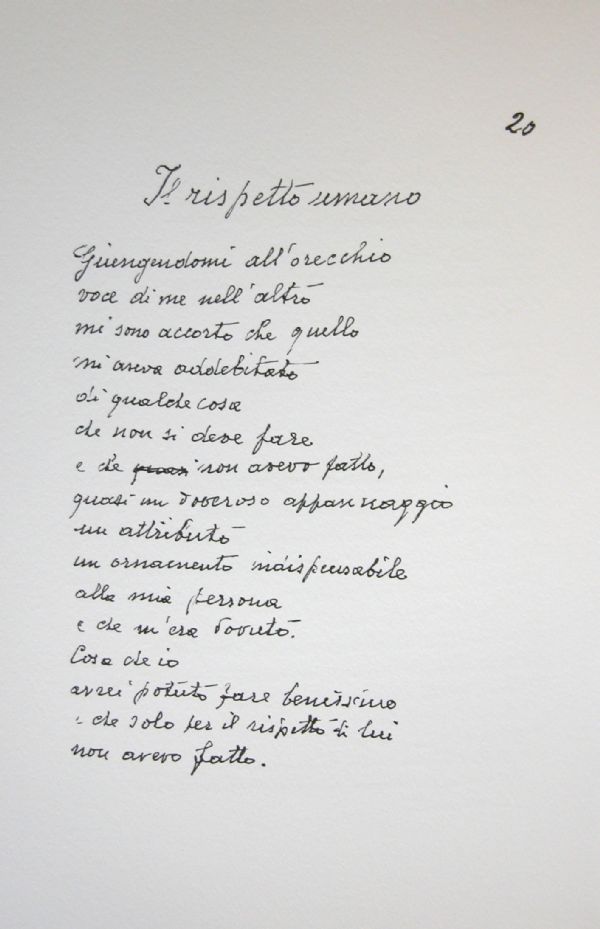 20
Il rispetto umano
Giungendomi all'orecchio
voce di me nell'altro
mi sono accorto che quello
mi aveva addebitato
di qualche cosa
che non si deve fare
e che quasi non avevo fatto,
quasi un doveroso appannaggio
un attributo
un ornamento indispensabile
alla mia persona
e che m'era dovuto.
Cosa che io
avrei potuto fare benissimo
e che solo per il rispetto di lui
non avevo fatto.